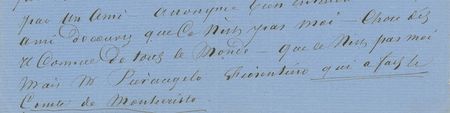 par un ami anonyme
ami découvre que ce n'est pas moi - chose dès
 connue de tout le monde - que ce n'est pas moi
mais M Pierangelo Fiorentino qui a fait le
Comte de Montecristo